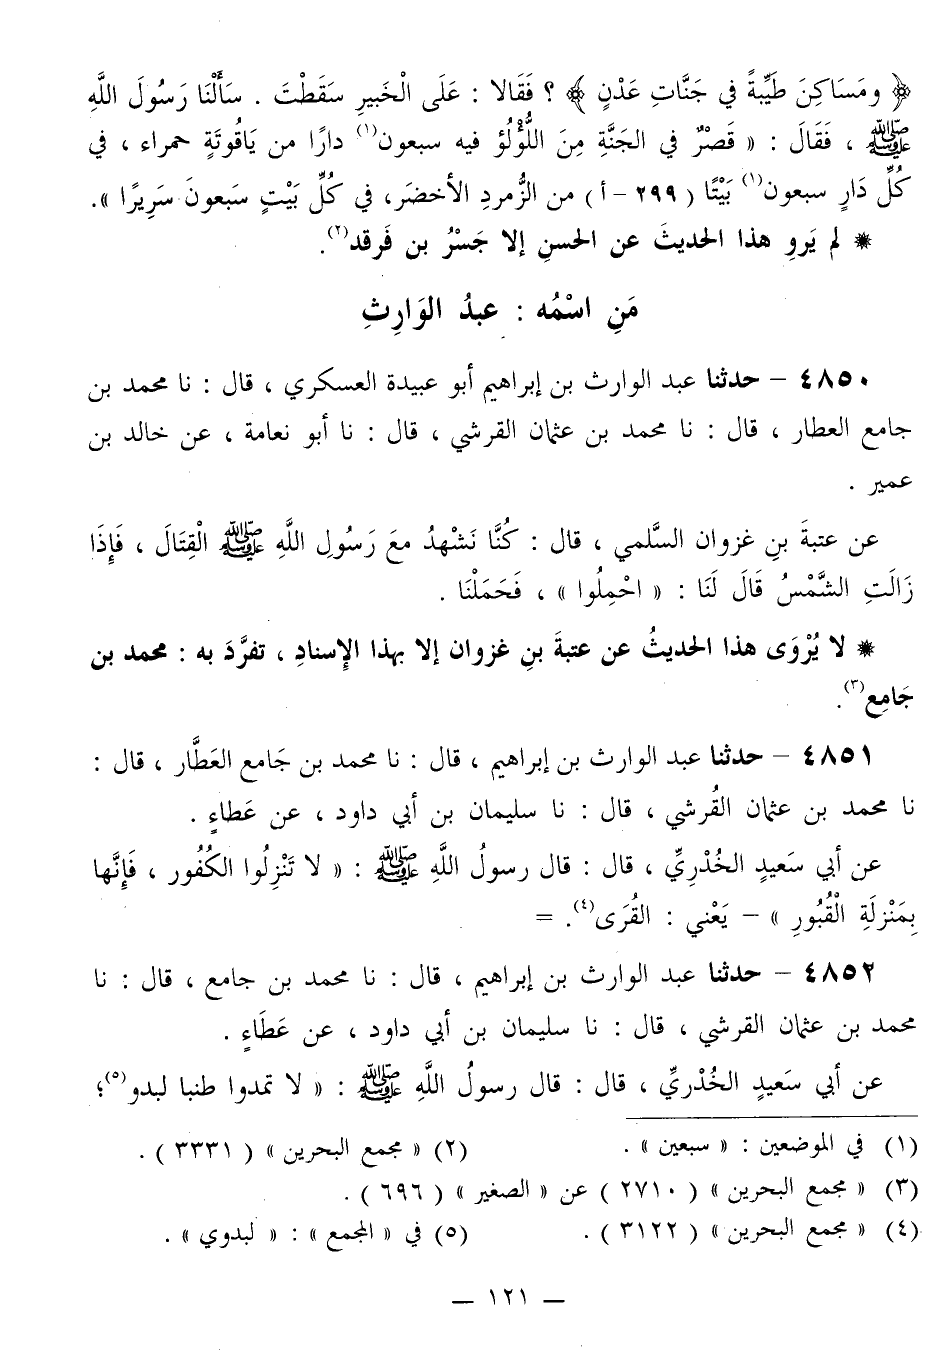 ﴿ ومَسَاكِنَ طَيِّبةً في جَنَّاتِ عَدْنٍ ﴾ ؟ فَقَالا : عَلَى الْخَبيرِ سَقَطْتَ . سَأَلْنَا رَسُولَ اللَّهِ
ﷺ ، فَقَالَ : « قَصْرٌ في الجَنَّةِ مِنَ اللُّؤْلُؤ فيه سبعون(١) دارًا من يَاقُوتَةٍ حمراء ، في
كُلِّ دَارٍ سبعون(١) بَيْتًا ( ٢٩٩ – أ ) من الزُّمردِ الأخضَر، في كُلِّ بَيْتٍ سَبعونَ سَرِيرًا ».
* لم يَروِ هذا الحديثَ عن الحسنِ إلا جَسْرُ بن فَرقد(٢).
مَنِ اسْمُه : عبدُ الوَارِثِ
٤٨٥٠ – حدثنا عبد الوارث بن إبراهيم أبو عبيدة العسكري ، قال : نا محمد بن
جامع العطار ، قال : نا محمد بن عثمان القرشي ، قال : نا أبو نعامة ، عن خالد بن
عمير .
عن عتبةَ بنِ غزوان السَّلمي ، قال : كُنَّا نَشْهدُ معَ رَسُولِ اللَّهِ ﷺ القِتَالَ ، فَإِذَا
زَالَتِ الشَّمْسُ قَالَ لَنَا : « احْمِلُوا » ، فَحَمَلْنَا .
* لا يُرْوَى هذا الحديثُ عن عتبةَ بنِ غزوان إلا بهذا الإسنادِ ، تفرَّدَ به : محمد بن
جَامِع(٣).
٤٨٥١ – حدثنا عبد الوارث بن إبراهيم ، قال : نا محمد بن جَامع العَطَّار ، قال :
نا محمد بن عثمان القُرشي ، قال : نا سليمان بن أبي داود ، عن عَطاءٍ .
عن أبي سَعيدٍ الخُدْرِيِّ ، قال : قال رسولُ اللَّهِ ﷺ : « لا تَنْزِلُوا الكُفُور ، فَإِنَّها
بِمَنْزلَةِ الْقُبُورِ » – يَعْني : القُرَى(٤). =
٤٨٥٢ – حدثنا عبد الوارث بن إبراهيم ، قال : نا محمد بن جامع ، قال : نا
محمد بن عثمان القرشي ، قال : نا سليمان بن أبي داود ، عن عَطَاءٍ .
عن أبي سَعيدٍ الخُدْريِّ ، قال : قال رسولُ اللَّهِ ﷺ : « لا تمدوا طنبا لبدو(٥)؛
(١) في الموضعين : « سبعين » .
(٢) « مجمع البحرين » ( ٣٣٣١ ) .
(٣) « مجمع البحرين » ( ٢٧١٠ ) عن « الصغير » ( ٦٩٦ ) .
(٤) « مجمع البحرين » ( ٣١٢٢ ) .
(٥) في « المجمع » : « لبدوي » .
— ١٢١ —